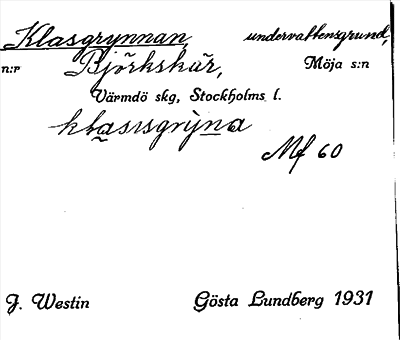 Klasgrynnan, undervattensgrund,
n:r Björkskär, Möja s:n
Värmdö skg, Stockholms l.
klasısgrỳna
Mf 60
J. Westin Gösta Lundberg 1931